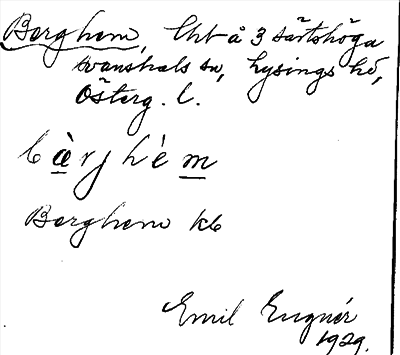 Berghem, lht å 3 Särtshöga
Svanshals sn, Lysings hd,
Österg. l.
bärjhèm
Berghem kb
Emil Engnér
1929.